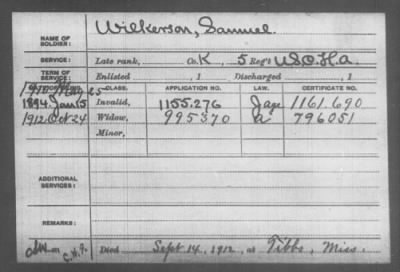 NAME OF SOLDIER: Wilkerson, Samuel.
SERVICE: Late rank, Co. K, 5 Reg't U.S.C.H.A.
TERM OF SERVICE: Enlisted , 1 Discharged , 1
CLASS. APPLICATION NO. LAW. CERTIFICATE NO.
1894. Jan 15 Invalid, 1155.276 1161.690
1912 Oct 24 Widow, 995370 a 796051
Minor,
ADDITIONAL SERVICES:
REMARKS:
Died Sept 14, 1912, at Tibbs, Miss.